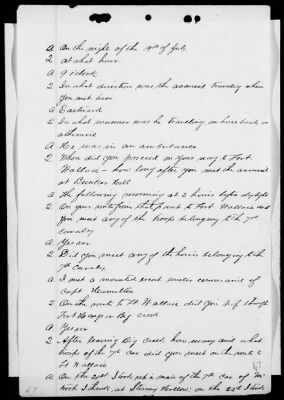 A On the night of the 19th of July
2 at what hour
A 9 o'clock
2 In what direction was the accused traveling when
you met him
A Eastward
2 In what manner was he traveling, on horse back or
otherwise
A He was in an ambulance
2 When did you proceed on your way to Fort
Wallace - how long after you met the accused
at Bunker Hill
A The following morning at 2 hours before daylight
2 On your route from that point to Fort Wallace did
you meet any of the troops belonging to the 7th
Cavalry
A Yes sir
2 Did you meet any of the horses belonging to the
7th Cavalry
A I met a mounted escort under command of
Capt Hamilton
2 On the route to Ft Wallace did you pass through
Fort Hays or Big Creek
A Yes sir
2 After leaving Big Creek how many and what
troops of the 7th Cav did you meet on the route to
Ft Wallace
A On the 21st I took up a man of the 7th Cav of "
troop I think, at Stormy Hollow; on the 22d I took